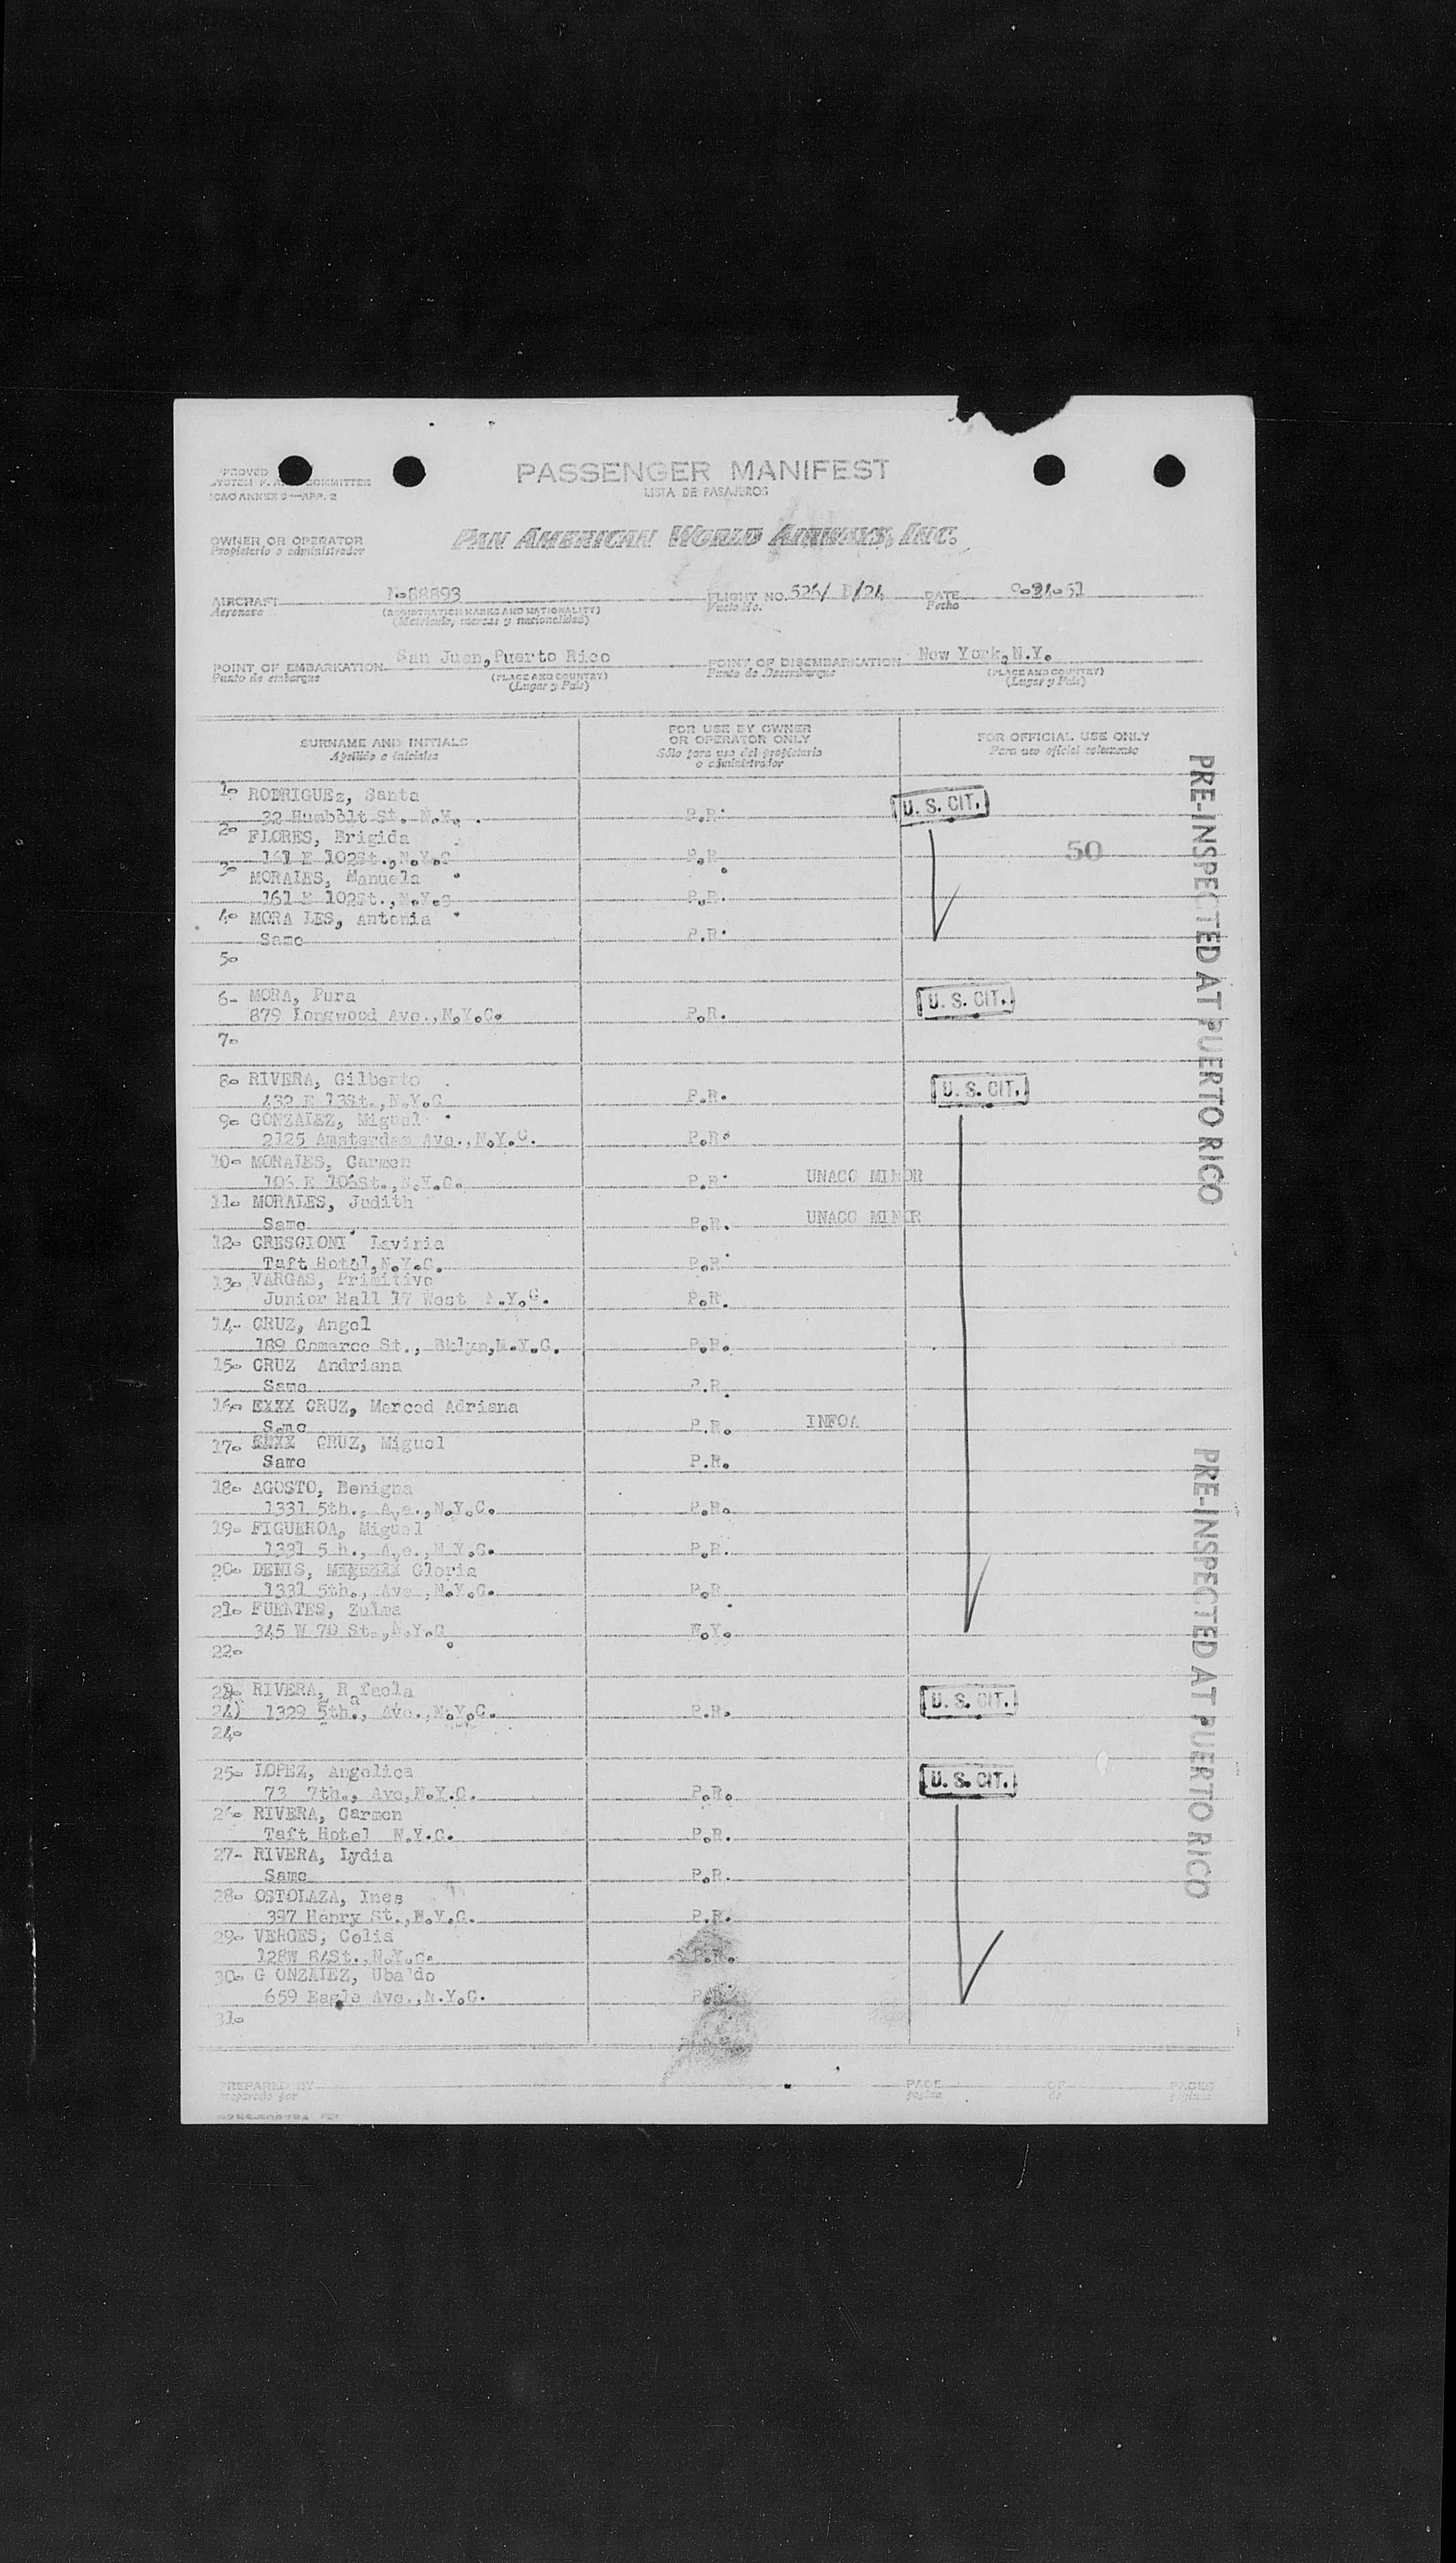 PASSENGER MANIFEST
LISTA DE PASAJEROS
PROVED
COMMITTEE
ICAO ANNEX 9—APP. 2
OWNER OR OPERATOR
Propietario o administrador
PAN AMERICAN WORLD AIRWAYS, INC.
AIRCRAFT N-88893 FLIGHT NO. 526/ D/24 DATE 9-24-51
Aeronave (REGISTRATION MARKS AND NATIONALITY) Vuelo No. Fecha
(Matricula, marcas y nacionalidad)
POINT OF EMBARKATION San Juan, Puerto Rico POINT OF DISEMBARKATION New York, N.Y.
Punto de embarque (PLACE AND COUNTRY) Punto de Desembarque (PLACE AND COUNTRY)
(Lugar y País) (Lugar y País)
SURNAME AND INITIALS FOR USE BY OWNER OR OPERATOR ONLY FOR OFFICIAL USE ONLY
Apellido e iniciales Sólo para uso del propietario o administrador Para uso oficial solamente
1- RODRIGUEz, Santa
32 Humbólt St. N.Y. P.R. U. S. CIT.
2- FLORES, Brigida
161 E 102St., N.Y.C P.R. 50
3- MORALES, Manuela
161 E 102St., N.Y.C P.R.
4- MORA LES, Antonia
Same P.R.
5-
6- MORA, Pura U. S. CIT.
879 Longwood Ave., N.Y.C. P.R.
7-
8- RIVERA, Gilberto U. S. CIT.
432 E 13St., N.Y.C P.R.
9- GONZALEZ, Miguel
2125 Amsterdam Ave., N.Y.C. P.R.
10- MORALES, Carmen
106 E 106St., N.Y.C. P.R. UNACC MINOR
11- MORALES, Judith
Same P.R. UNACC MINOR
12- CRESCIONI Laviria
Taft Hotel, N.Y.C. P.R.
13- VARGAS, Primitivo
Junior Hall 17 West N.Y.C. P.R.
14- CRUZ, Angel
189 Comerce St., Bklyn, N.Y.C. P.R.
15- CRUZ Andriana
Same P.R.
16- EXXX CRUZ, Merced Adriana
Same P.R. INFOA
17- CRUZ, Miguel
Same P.R.
18- AGOSTO, Benigna
1331 5th., Ave., N.Y.C. P.R.
19- FIGUEROA, Miguel
1331 5 h., Ave., N.Y.C. P.R.
20- DENIS, Gloria
1331 5th., Ave., N.Y.C. P.R
21- FUENTES, Zulma
345 W 70 St., N.Y.C N.Y.
22-
23- RIVERA, Rafaela U. S. CIT.
24) 1329 5th., Ave., N.Y.C. P.R.
24-
25- LOPEZ, Angelica U. S. CIT.
73 7th., Ave, N.Y.C. P.R.
26- RIVERA, Carmen
Taft Hotel N.Y.C. P.R.
27- RIVERA, Lydia
Same P.R.
28- OSTOLAZA, Ines
397 Henry St., N.Y.C. P.R.
29- VERGES, Celia
128W 84St., N.Y.C. P.R.
30- G ONZALEZ, Ubaldo
659 Eagle Ave., N.Y.C. P.R.
31-
PREPARED BY PAGE OF PAGES
Preparado por página de páginas
PRE-INSPECTED AT PUERTO RICO
PRE-INSPECTED AT PUERTO RICO